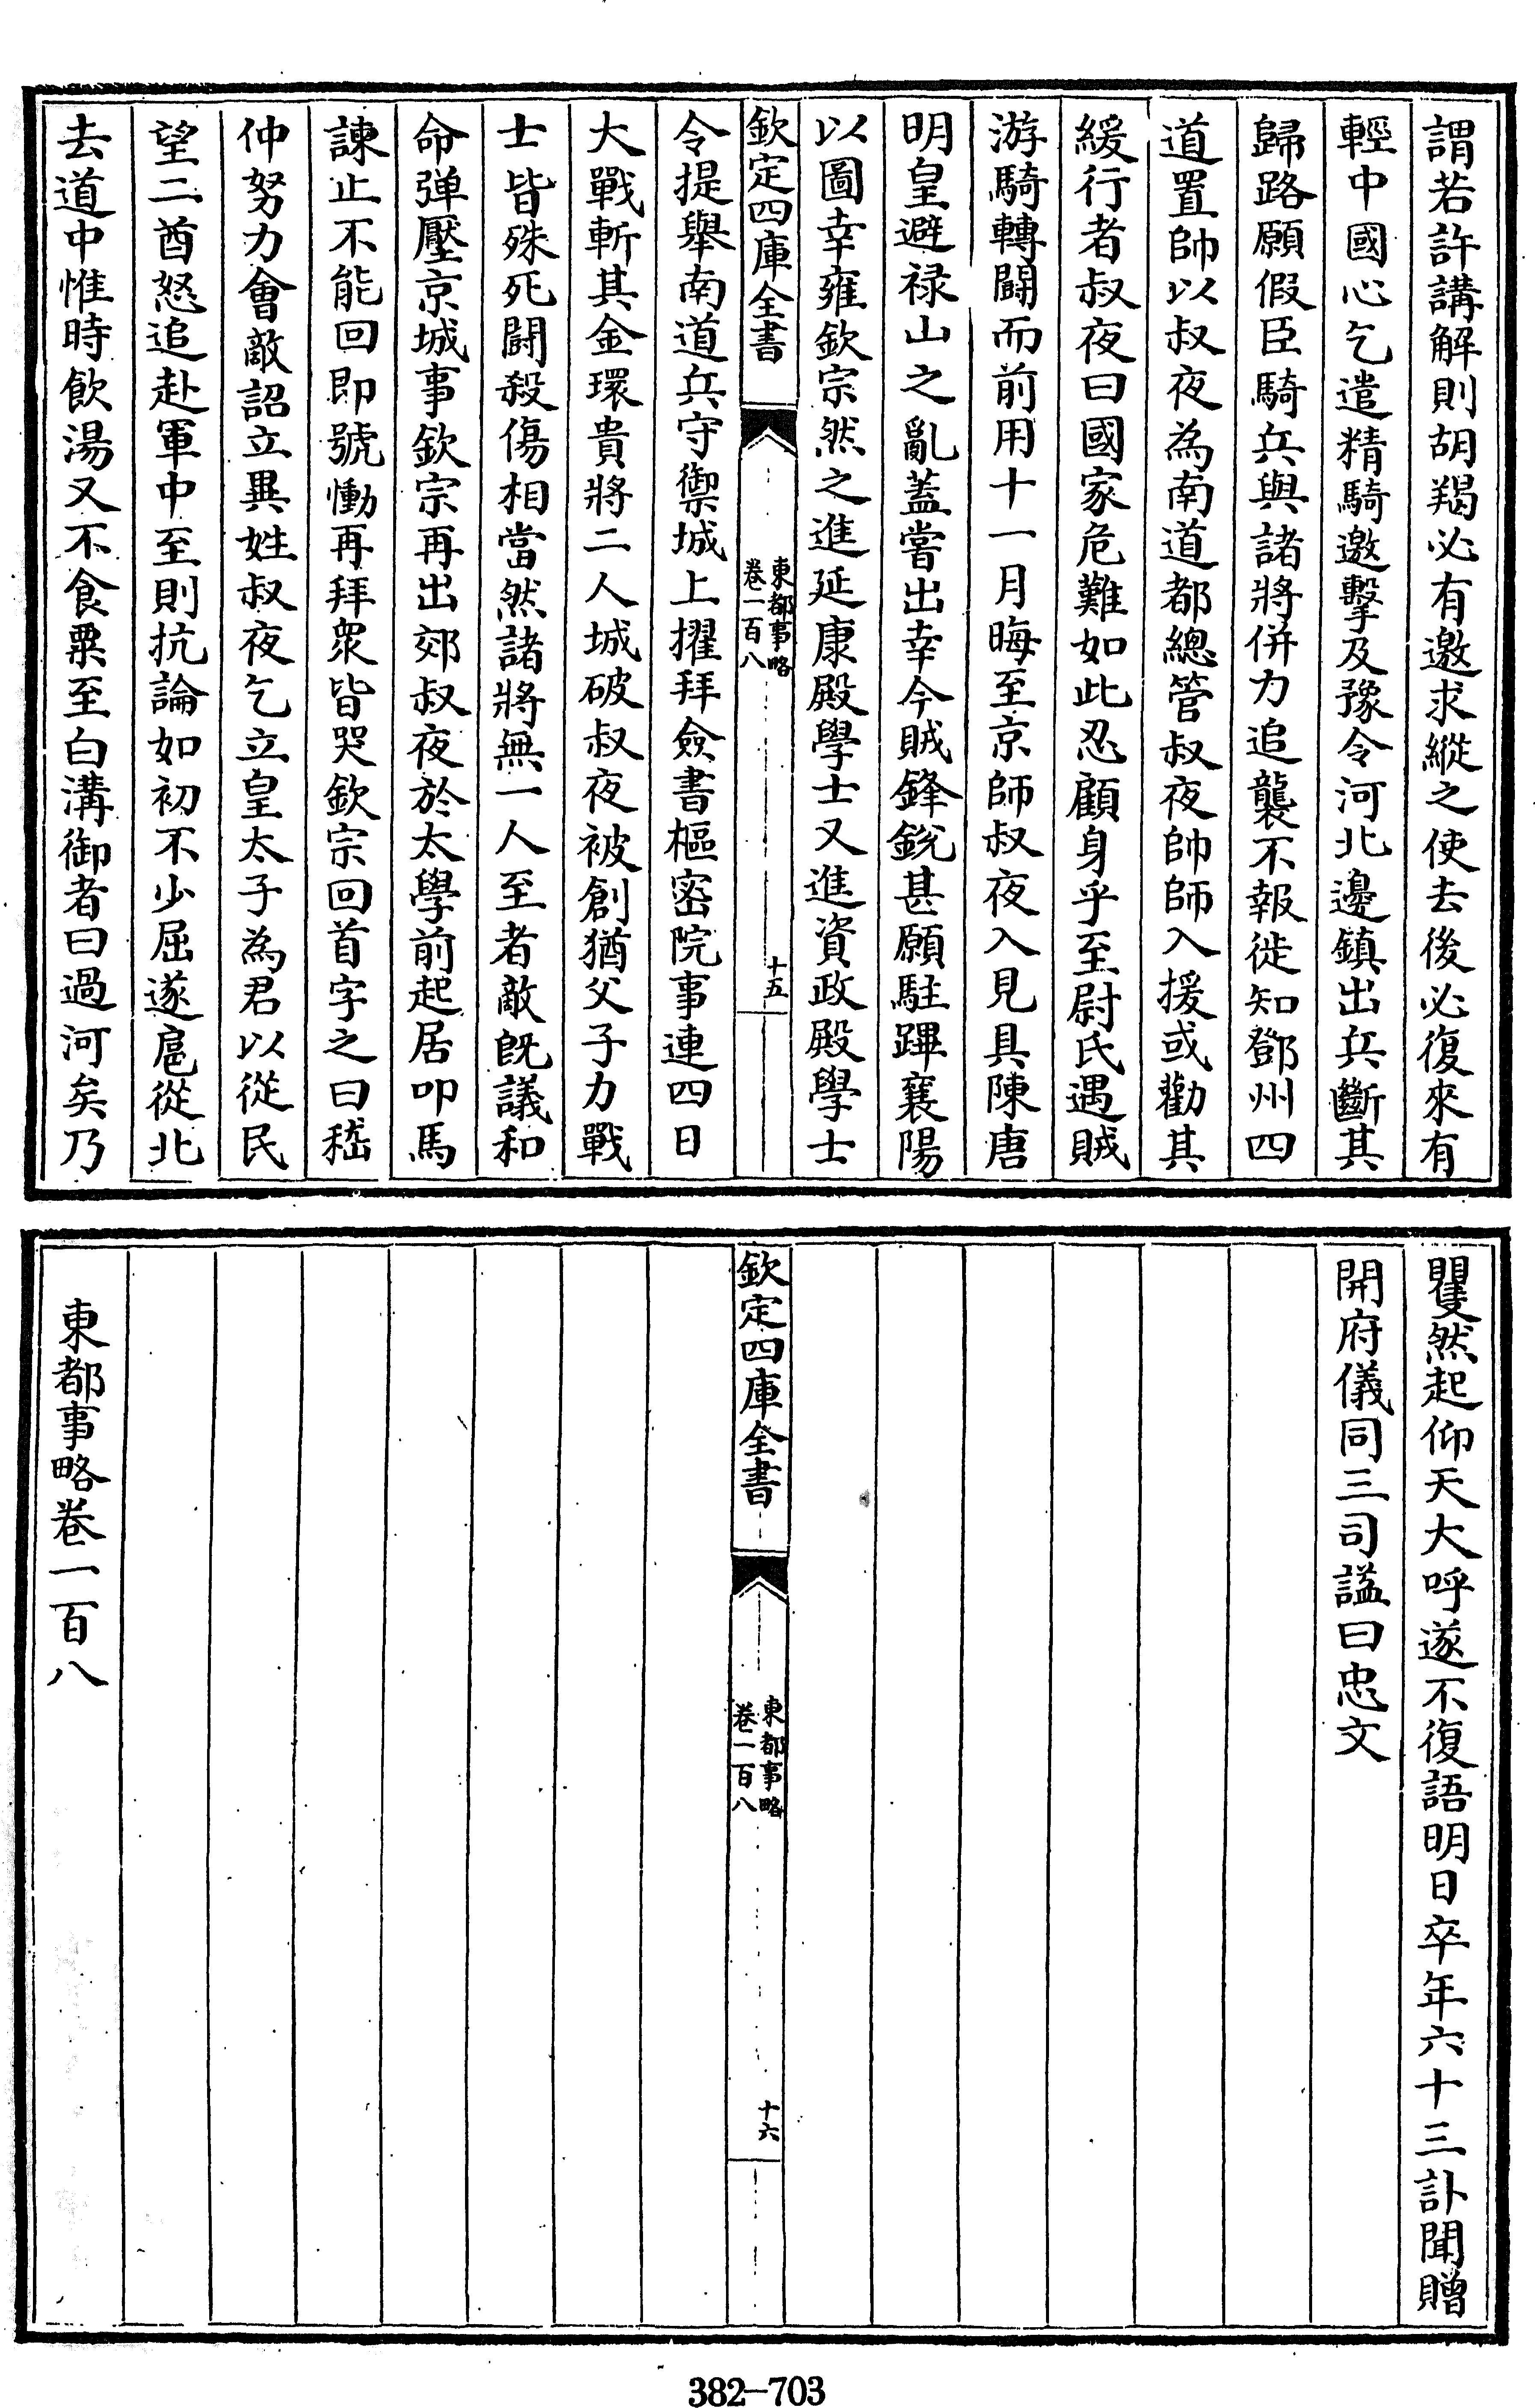 謂若許講解則胡羯必有邀求縱之使去後必復來有
輕中國心乞遣精騎邀擊及豫令河北邊鎮出兵斷其
歸路願假臣騎兵與諸將併力追襲不報徙知鄧州四
道置帥以叔夜為南道都總管叔夜帥師入援或勸其
緩行者叔夜曰國家危難如此忍顧身乎至尉氏遇賊
游騎轉闘而前用十一月晦至京師叔夜入見具陳唐
明皇避禄山之亂蓋嘗出幸今賊鋒銳甚願駐蹕襄陽
以圖幸雍欽宗然之進延康殿學士又進資政殿學士
欽定四庫全書
東都事略
卷一百八
十五
令提舉南道兵守禦城上擢拜僉書樞密院事連四日
大戰斬其金環貴將二人城破叔夜被創猶父子力戰
士皆殊死闘殺傷相當然諸將無一人至者敵既議和
命弹壓京城事欽宗再出郊叔夜於太學前起居叩馬
諫止不能回即號慟再拜眾皆哭欽宗回首字之曰嵇
仲努力會敵詔立異姓叔夜乞立皇太子為君以從民
望二酋怒追赴軍中至則抗論如初不少屈遂扈從北
去道中惟時飲湯又不食粟至白溝御者曰過河矣乃
矍然起仰天大呼遂不復語明日卒年六十三訃聞贈
開府儀同三司諡曰忠文
欽定四庫全書
東都事略
卷一百八
十六
東都事略卷一百八
382-703